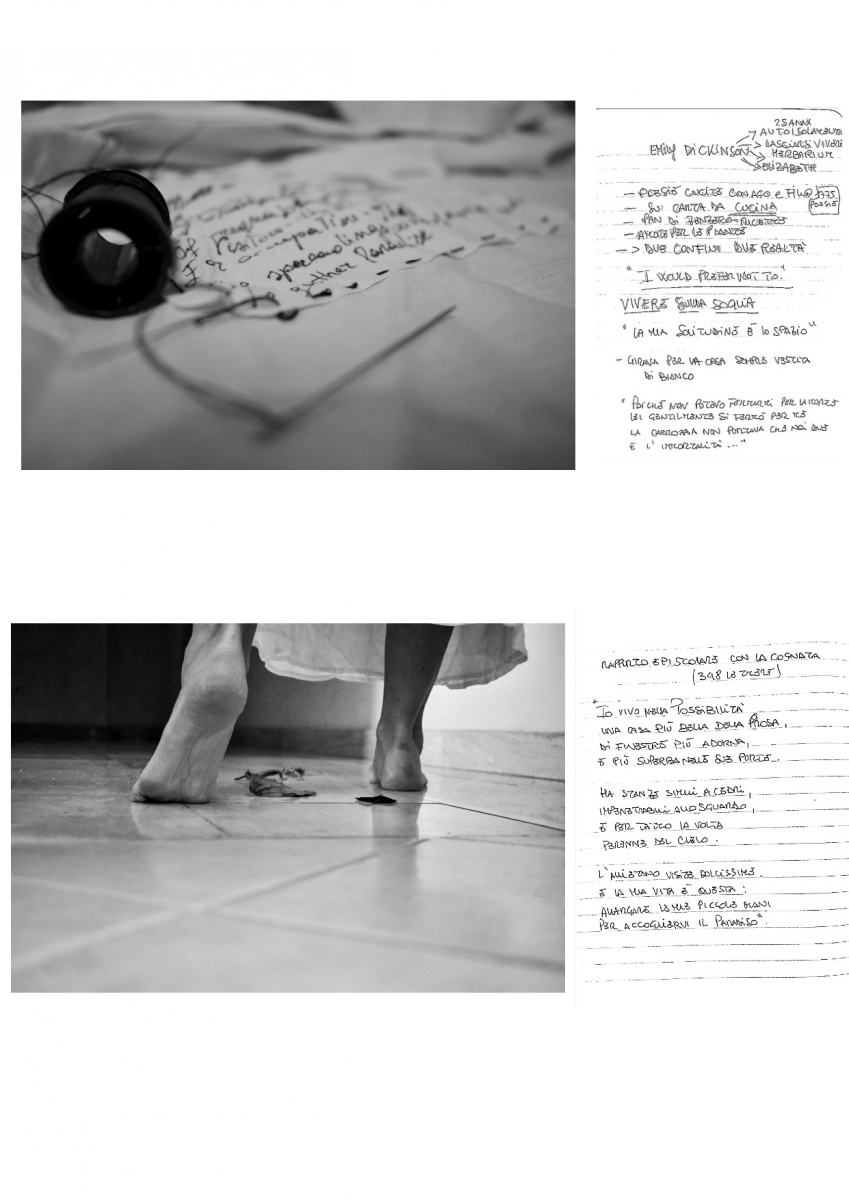 of
Visitors
For occupation
spreading
gather Paradise
25 ANNI
AUTOISOLAMENTO
EMILY DICKINSON
LASCIARE VIVERE
HERBARIUM
ELIZABETH
- POESIE CUCITE CON AGO E FILO 1775 POESIE
- SU CARTA DA CUCINA
- PAN DI ZENZERO - RICETTE
- AMORE PER LE PIANTE
-> DUE CONFINI DUE REALTÀ
"I WOULD PREFER NOT TO."
VIVERE SULLA SOGLIA
"LA MIA SOLITUDINE È LO SPAZIO"
- GIRAVA PER LA CASA SEMPRE VESTITA
DI BIANCO
"POICHÉ NON POTEVO FERMARMI PER LA MORTE
LEI GENTILMENTE SI FERMÒ PER ME
LA CARROZZA NON PORTAVA CHE NOI DUE
E L'IMMORTALITÀ..."
RAPPORTO EPISTOLARE CON LA COGNATA
(348 LETTERE)
"IO VIVO NELLA POSSIBILITÀ
UNA CASA PIÙ BELLA DELLA PROSA,
DI FINESTRE PIÙ ADORNA,
E PIÙ SUPERBA NELLE SUE PORTE.
HA STANZE SIMILI A CEDRI,
IMPENETRABILI ALLO SGUARDO,
E PER TETTO LA VOLTA
PERENNE DEL CIELO.
L'ALLIETANO VISITE DOLCISSIME.
E LA MIA VITA È QUESTA:
ALLARGARE LE MIE PICCOLE MANI
PER ACCOGLIERVI IL PARADISO".